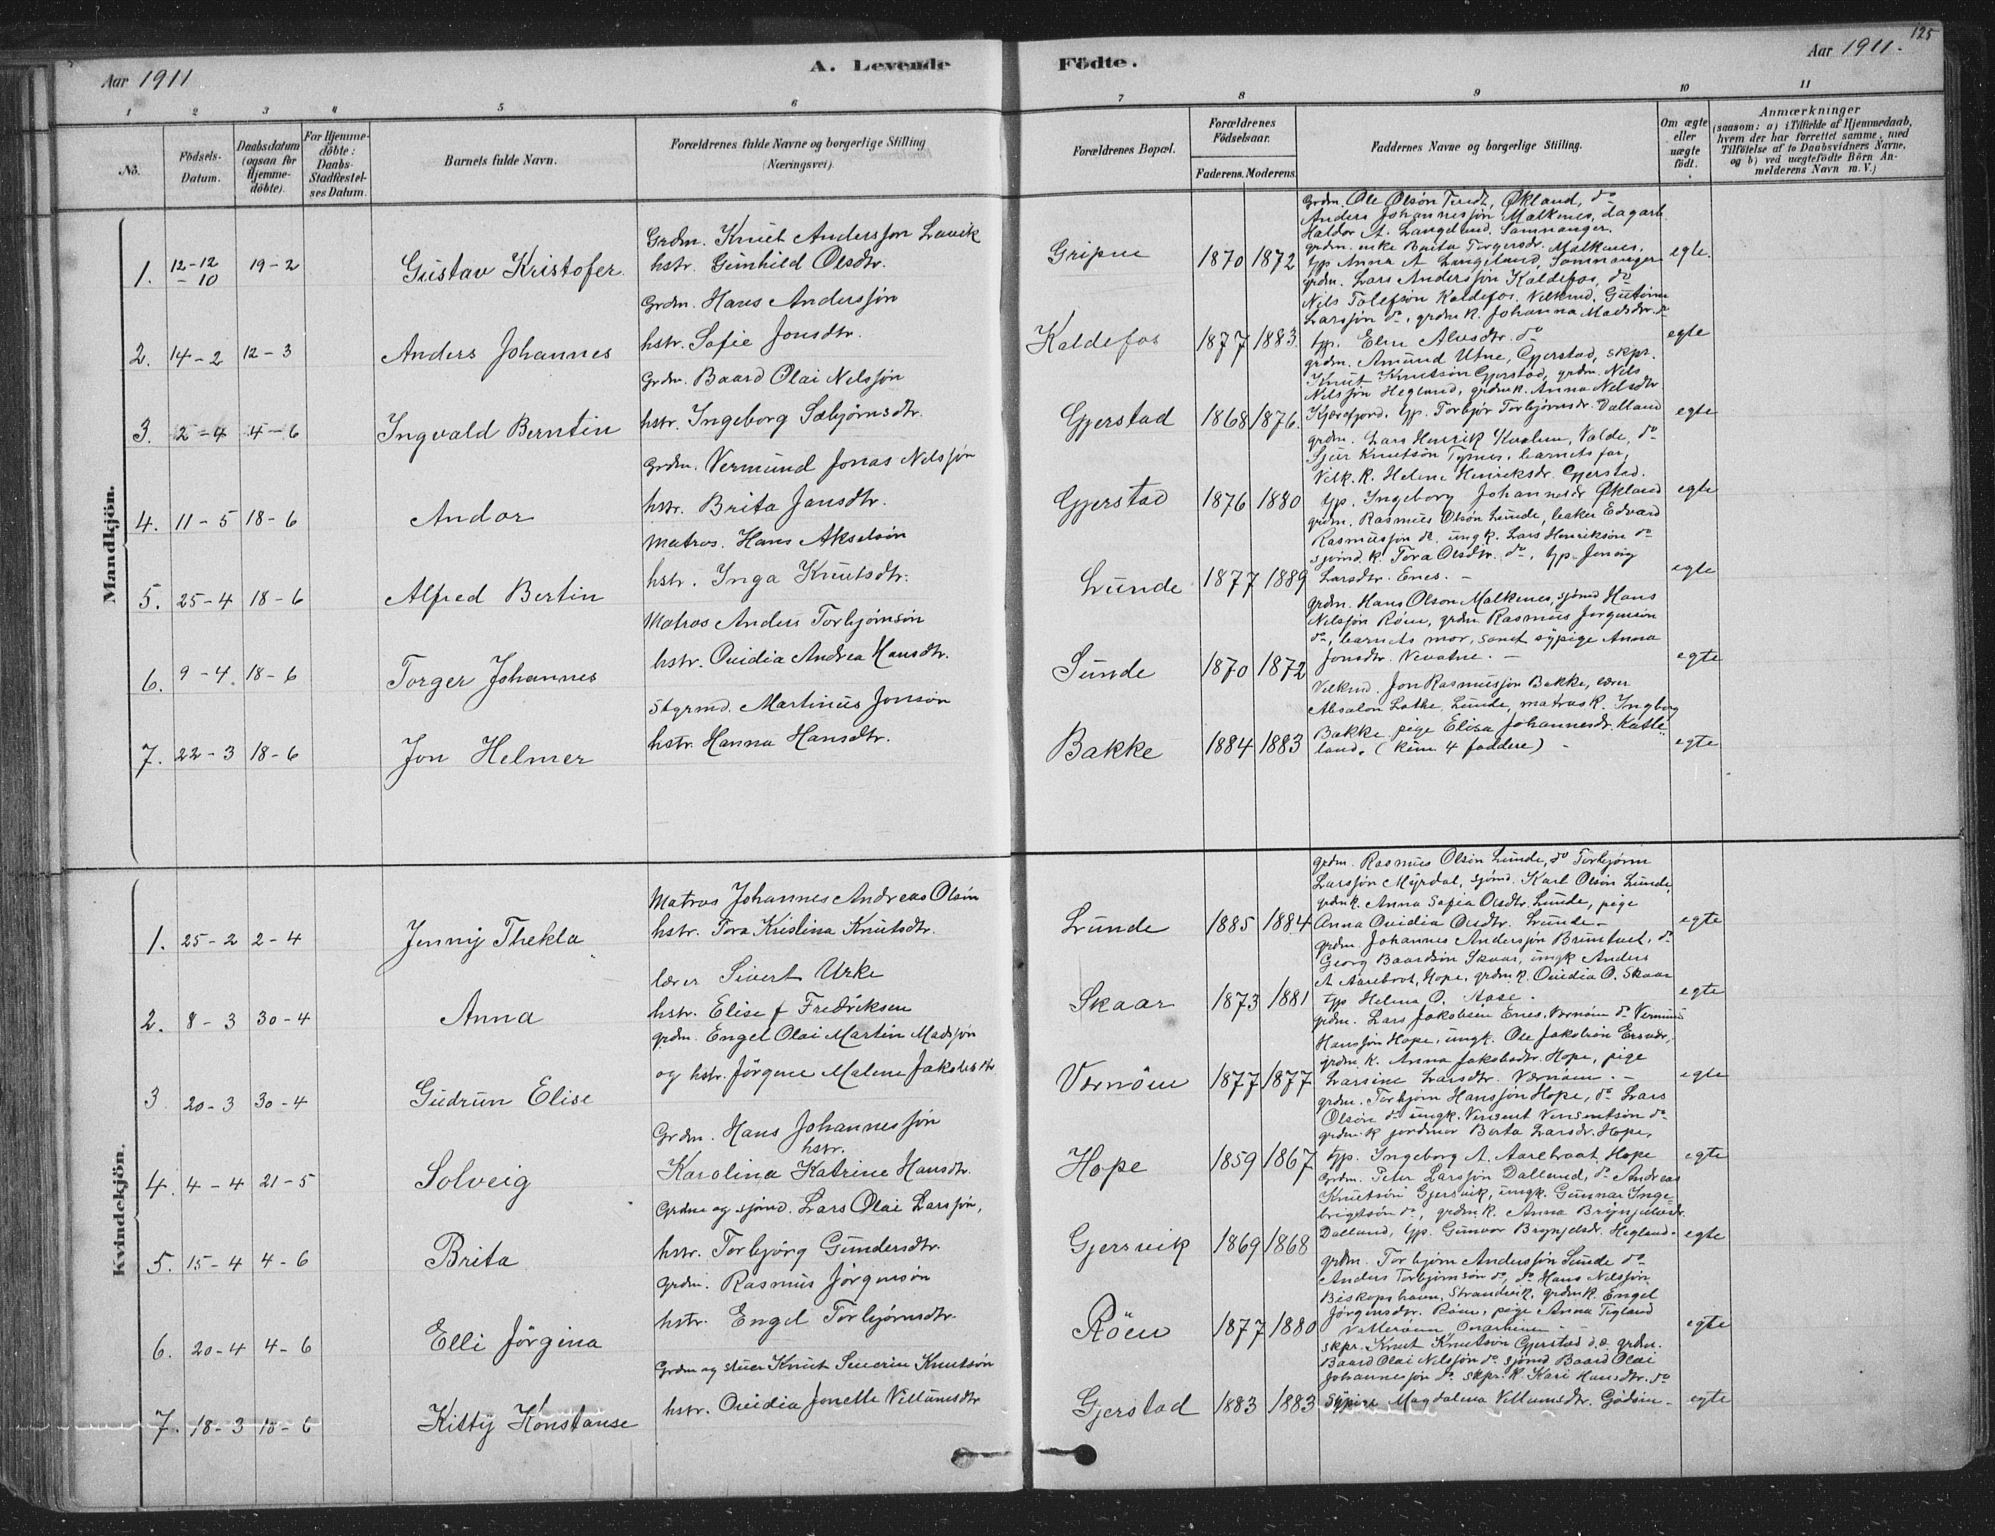 Aar 1911
A. Levende
Födte.
Aar 1911.
125
1 2 3 4 5 6 7 8 9 10 11
No.
Födsels-Datum.
Daabsdatum (ogsaa for Hjemme-döbte).
For Hjemme-döbte: Daabs-Stadfæstel-ses Datum.
Barnets fulde Navn.
Forældrenes fulde Navne og borgerlige Stilling (Næringsvei).
Forældrenes Bopæl.
Forældrenes Födselsaar.
Faderens. Moderens.
Faddernes Navne og borgerlige Stilling.
Om ægte eller uægte födt.
Anmærkninger
(saasom: a) i Tilfælde af Hjemmedaab, hvem der har forrettet samme, med Tilföielse af to Daabsvidners Navne, og b) ved uægtefödte Börn An-melderens Navn m. V.)
Mandkjön.
1. 12-12-10 19-2 Gustav Kristofer
Grdm. Knut Andersson Lavik
hstr. Gunhild Olsdtr.
Gripne 1870 1872
grdm. Ole Olsøn Tendt, Økland, do
Anders Johannesjøn Malkenes, dagarb.
Haldor A. Langeland, Samnanger.
grdm. enke Brita Torgersdr. Malkenes.
typ Anna A. Langeland, Samnanger
egte.
2. 14-2 12-3 Anders Johannes
Grdm. Hans Andersjøn
hstr. Sofie Jonsdtr.
Kaldefos 1877 1883
grdm. Lars Andersjøn Kaldefos, do
Nils Tolefsøn Kaldefos. Vilkmd. Guttorm
Larsjøn do, grdm k. Johanna Madsdtr. do
typ. Eline Alvsdtr. do
egte
3. 2-4 4-6 Ingvald Berntin
Grdm. Baard Olai Nelsjøn
hstr. Ingeborg Sæbjørnsdtr.
Gjerstad 1868 1876.
grdm. Amund Utne, Gjerstad, skpr.
Knut Knutsøn Gjerstad, grdm. Nils
Nilsjøn Hegland, grdm k. Anna Nelsdtr
Kjærefjord, typ. Torbjør Torbjørnsdr. Dalland
egte
4. 11-5 18-6 Andor
Grdm. Vermund Jonas Nelsjøn
hstr. Brita Jansdtr.
Gjerstad 1876 1880
grdm. Lars Henrik Valde, do
Knutsøn Tynes, barnets far,
Vilk. k. Helene Henriksdr Gjerstad.
typ. Ingeborg Johannesdr Økland
egte
5. 25-4 18-6 Alfred Bertin
Matros. Hans Akselsøn
hstr. Inga Knutsdtr.
Lunde 1877 1889
grdm. Rasmus Olsøn Lunde, baker Edvard
Rasmusjøn do. ungk. Lars Henriksøn do
sjømd. k. Tora Olsdtr. do, typ. Jensig
Larsdtr. Enes. -
egte
6. 9-4. 18-6 Torger Johannes
Matros Anders Torbjørnsøn
hstr. Ovidia Andrea Hansdtr.
Sunde 1870 1872
grdm. Hans Olson Malkenes, sjømd Hans
Nilsjøn Røen, grdm Rasmus Jørgensøn
do, barnets mor, samt sypige Anna
Jonsdtr. Nevatne. -
egte
7. 22-3 18-6 Jon Helmer
Styrmd. Martinus Jonsøn
hstr. Hanna Hansdtr.
Bakke 1884 1883
Vilkmd. Jon Rasmusjøn Bakke, lærer
Absalon Lothe, Lunde, matros k. Ingborg
Bakke, pige Elisa Johannesdr. Katte-
land. (kun 4 faddere) -
egte
Kvindekjön.
1. 25-2 2-4 Jenny Thekla
Matros Johannes Andreas Olsøn
hstr. Tora Kristina Knutsdtr.
Lunde 1885 1884
grdm. Rasmus Olsøn Lunde, do Torbjørn
Larsjøn Myrdal, sjømd. Karl Olsøn Lunde,
grdm k. Anna Sofia Olsdtr. Lunde, pige
Anna Ovidia Olsdtr. Lunde -
egte
2. 8-3 30-4 Anna
lærer Sivert Urke
hstr. Elise f Fredriksen
Skaar 1873 1881
grdm. Johannes Andersjøn Bruntvet, do
Georg Baardsøn Skaar, ungk Anders
A Aarebrot, Hope, grdm k. Ovidia O. Skaar
typ Helena O. Aase.
egte
3 20-3 30-4 Gudrun Elise
grdm. Engel Olai Martin Madsjøn
og hstr. Jörgine Malene Jakobsdtr
Værnøen 1877 1877
grdm. Lars Jakobsen Enes, Værnøen do Vermund
Hansjøn Hope, ungk. Ole Jakobsøn
grdm k. Anna Jakobsdtr. Hope, pige
Larsine Larsdtr. Værnøen. -
egte
4. 4-4 21-5 Solveig
Grdm. Hans Johannesjøn
hstr.
Karolina Katrine Hansdtr.
Hope 1859 1867
grdm. Torbjørn Hansjøn Hope, do Lars
Olsøn do ungk. Vinsent Vinsentsøn do
grdm k jordmor Berta Larsdr. Hope,
typ. Ingeborg A. Aarebraat Hope
egte
5. 15-4 4-6 Brita
Grdm og sjømd. Lars Olai Larsjøn,
hstr. Torbjørg Gundersdtr.
Gjersvik 1869 1868
Grdm. Peter Larsjøn Dalland, do Andreas
Knutsøn Gjersvik, ungk. Gunnar Inge-
brigtsøn do, grdm k. Anna Brynjulvsdr.
Dalland, typ. Gunvor Brynjelsdr. Hegland.
egte
6. 20-4 4-6 Elli Jörgina
Grdm. Rasmus Jörgensøn
hstr. Engel Torbjørnsdtr.
Röen 1877 1880
grdm. Torbjørn Andersjøn Sunde do
Anders Torbjørnsøn do, do Hans Nelsjøn
Biskopshavn, Strandvik, grdm k. Engel
Jørgensdtr. Røen, pige Anna Tegland
Onarheim -
egte
7. 18-3 10-6 Kitty Konstanse
Grdm og stuer Knut Severin Knutsøn
hstr. Ovidia Jonette Villumsdtr
Gjerstad 1883 1883
skpr. Knut Knutsøn Gjerstad d.e. grdm.
Baard Olai Nelsjøn do sjømd Baard Olai
Johannesjøn do, skpr. k. Kari Hansdtr. do
Sypige Magdalena Villumsdtr. Gödsin -
egte